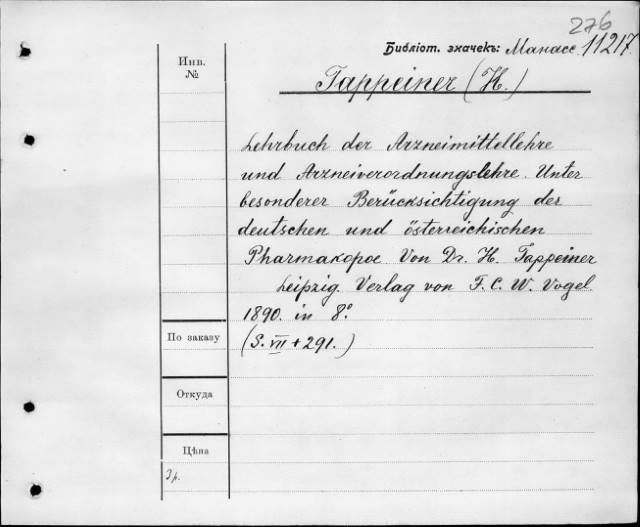 276
Библіот. значекъ: Манасс. 11217.
Инв.
№
Tappeiner (H.)
Lehrbuch der Arzneimittellehre
und Arzneiverordnungslehre. Unter
besonderer Berücksichtigung der
deutschen und österreichischen
Pharmakopoe Von Dr. H. Tappeiner
Leipzig. Verlag von F. C. W. Vogel
1890. in 8°.
По заказу
(S. VII + 291.)
Откуда
Цѣна
3 р.